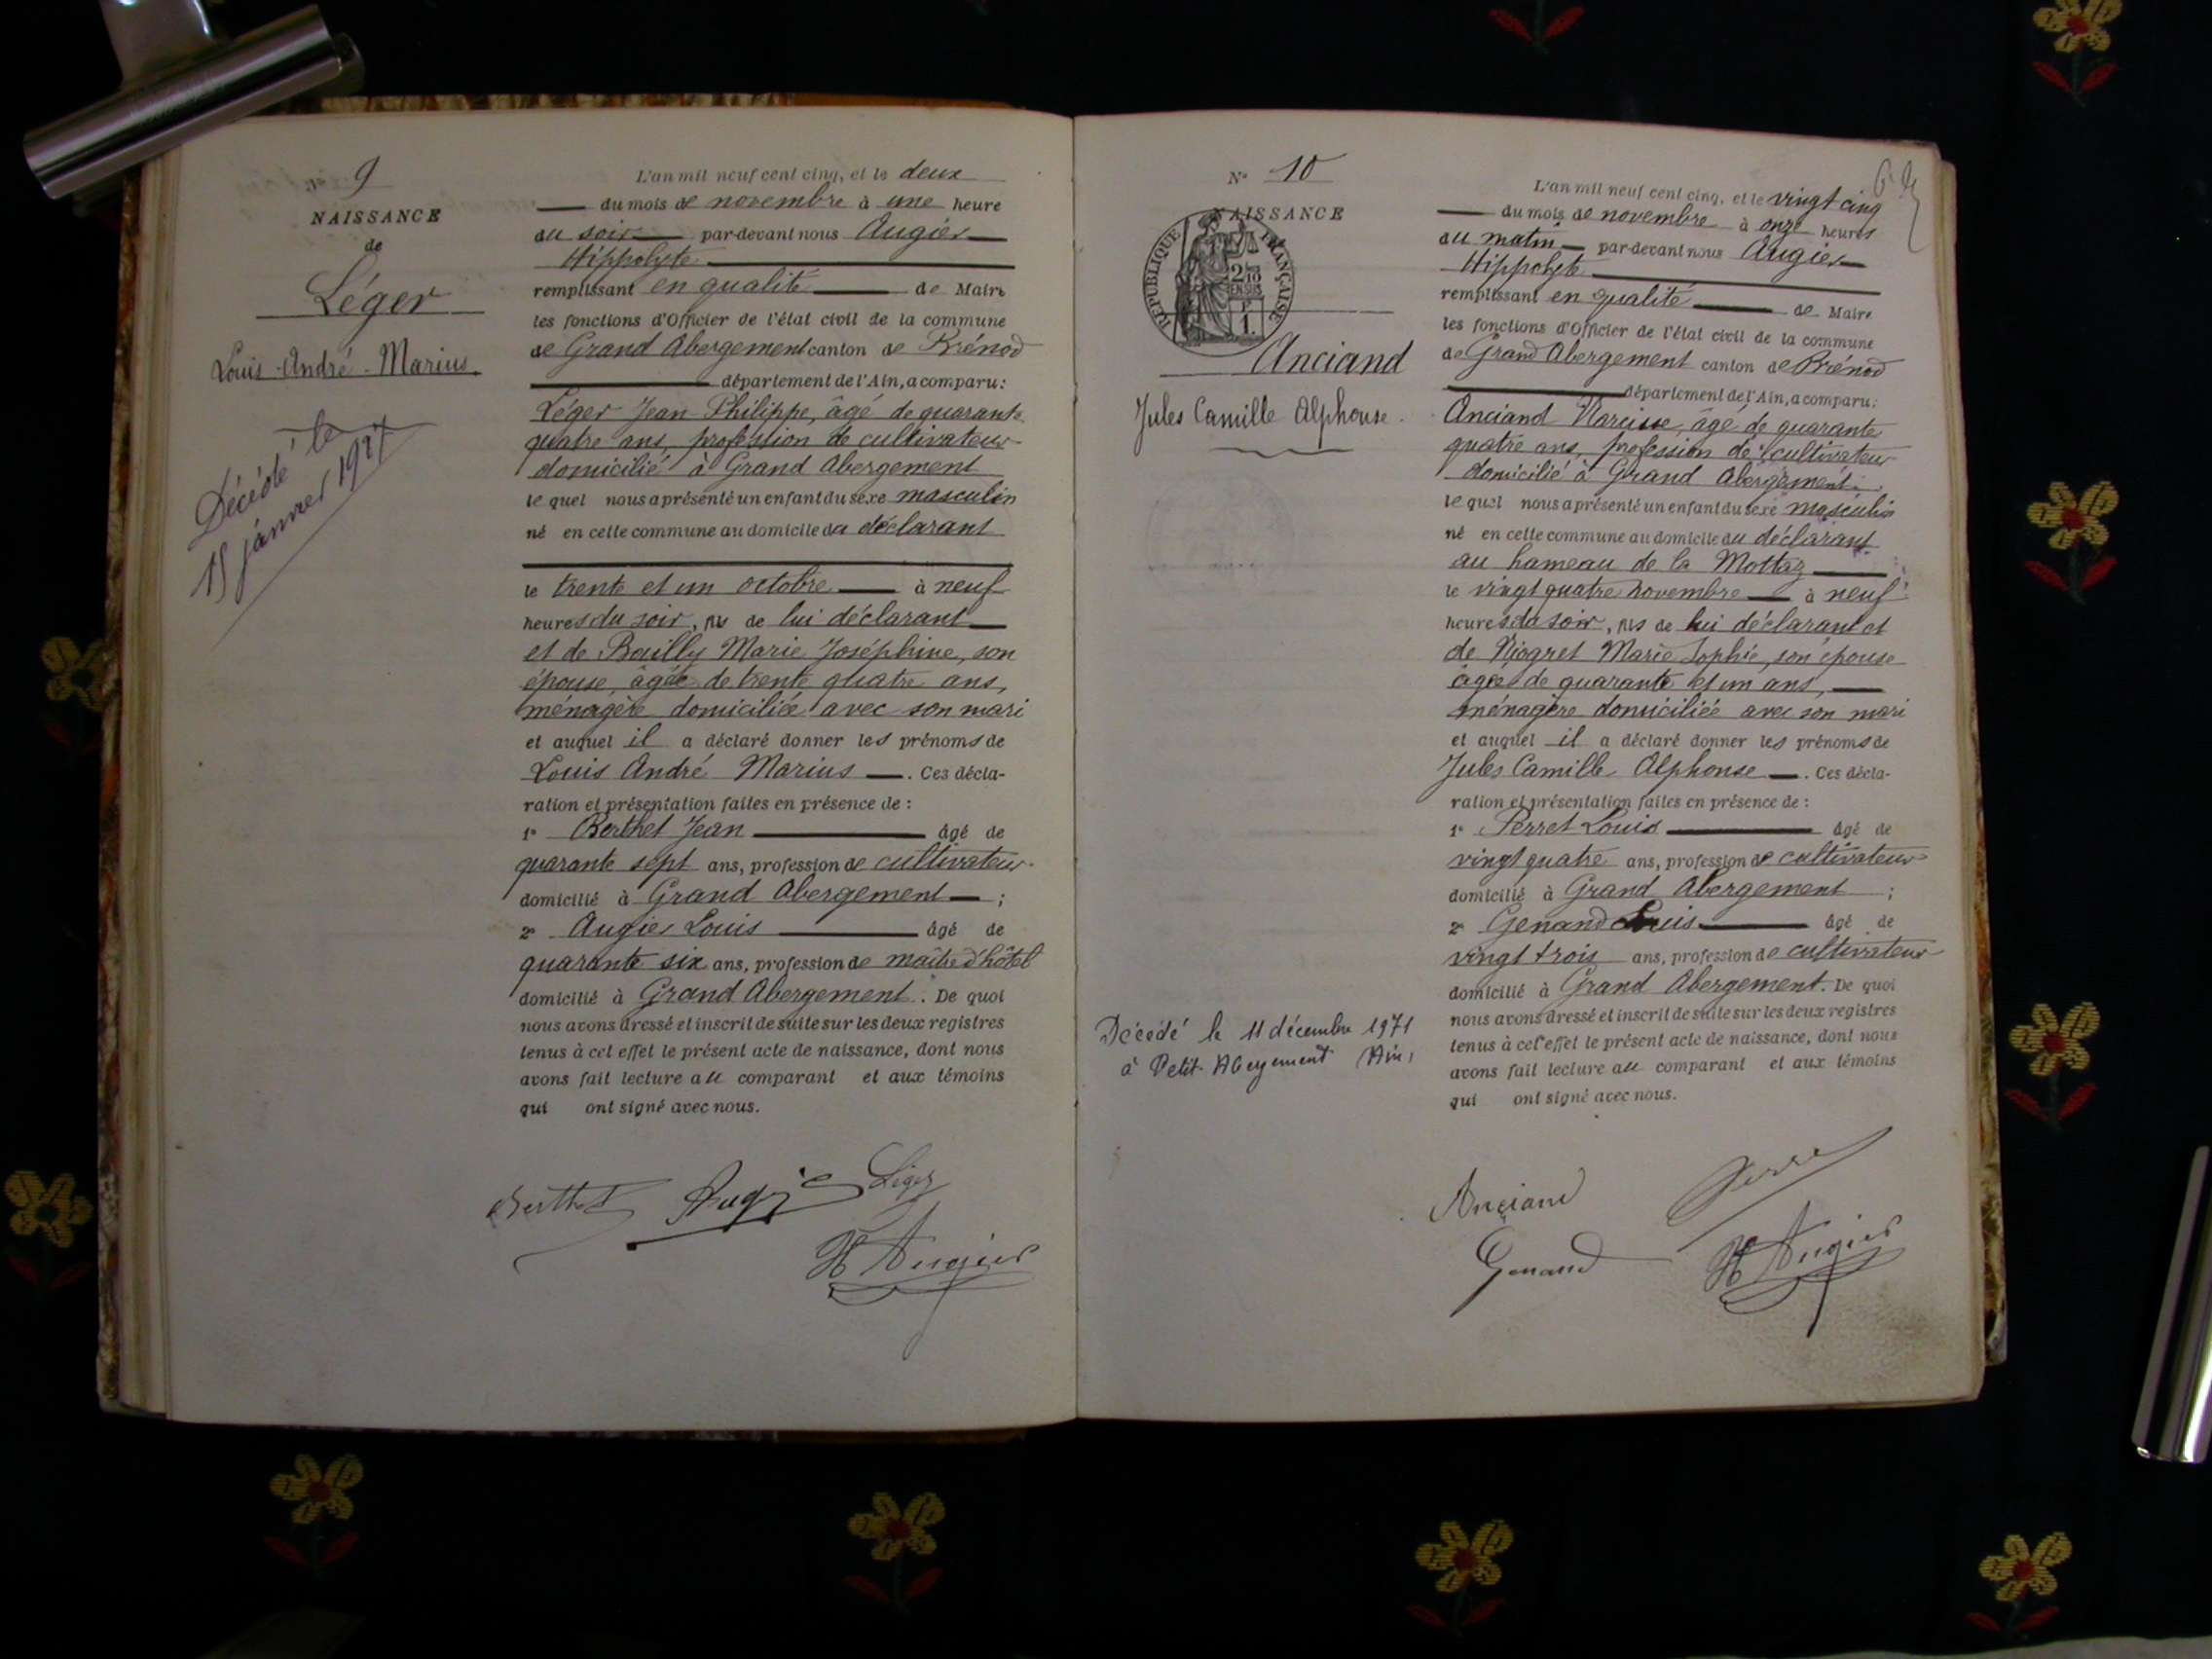 9
NAISSANCE
de
Léger
Louis-André-Marius
Décédé le
15 janvier 19
L'an mil neuf cent cinq, et le deux
du mois de novembre à une heure
du soir par-devant nous Augier
Hippolyte
remplissant en qualité de Maire
les fonctions d'Officier de l'état civil de la commune
de Grand Abergement canton de Brénod
département de l'Ain, a comparu:
Léger Jean Philippe, âgé de quarante
quatre ans, profession de cultivateur
domicilié à Grand Abergement
le quel nous a présenté un enfant du sexe masculin
né en cette commune au domicile du déclarant
le trente et un octobre à neuf
heures du soir, fils de lui déclarant
et de Bailly Marie Joséphine, son
épouse, âgée de trente quatre ans,
ménagère domiciliée avec son mari
et auquel il a déclaré donner les prénoms de
Louis André Marius. Ces décla-
ration et présentation faites en présence de :
1° Berthet Jean âgé de
quarante sept ans, profession de cultivateur
domicilié à Grand Abergement ;
2° Augier Louis âgé de
quarante six ans, profession de maître d'hôtel
domicilié à Grand Abergement. De quoi
nous avons dressé et inscrit de suite sur les deux registres
tenus à cet effet le présent acte de naissance, dont nous
avons fait lecture au comparant et aux témoins
qui ont signé avec nous.
Berthet Augier Léger
H Augier
N° 10
NAISSANCE
RÉPUBLIQUE FRANÇAISE
Anciand
Jules Camille Alphonse
Décédé le 11 décembre 1971
à Petit-Abergement (Ain)
L'an mil neuf cent cinq, et le vingt cinq
du mois de novembre à onze heures
du matin par-devant nous Augier
Hippolyte
remplissant en qualité de Maire
les fonctions d'Officier de l'état civil de la commune
de Grand Abergement canton de Brénod
département de l'Ain, a comparu:
Anciand Narcisse, âgé de quarante
quatre ans, profession de cultivateur
domicilié à Grand Abergement
le quel nous a présenté un enfant du sexe masculin
né en cette commune au domicile du déclarant
au hameau de la Mottaz
le vingt quatre novembre à neuf
heures du soir, fils de lui déclarant et
de Niogret Marie Sophie, son épouse
âgée de quarante et un ans,
ménagère domiciliée avec son mari
et auquel il a déclaré donner les prénoms de
Jules Camille Alphonse. Ces décla-
ration et présentation faites en présence de :
1° Perret Louis âgé de
vingt quatre ans, profession de cultivateur
domicilié à Grand Abergement ;
2° Genand Louis âgé de
vingt trois ans, profession de cultivateur
domicilié à Grand Abergement. De quoi
nous avons dressé et inscrit de suite sur les deux registres
tenus à cet effet le présent acte de naissance, dont nous
avons fait lecture au comparant et aux témoins
qui ont signé avec nous.
Anciand
Genand H Augier